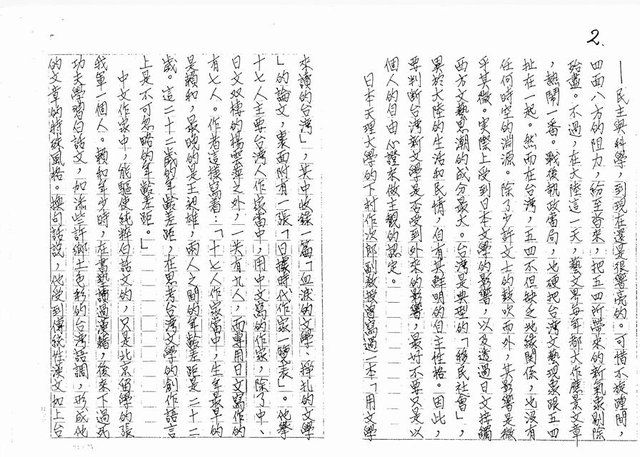 2.
——民主與科學,到現在還是很響亮的。可惜不旋踵間,
四面八方的阻力,紛至沓來,把五四所帶來的新氣象剷除
殆盡。不過,在大陸這一天,藝文界每年都大作應景文章
,熱鬧一番。戰後執政當局,也硬把台灣文藝現象跟五四
扯在一起。然而在台灣,五四不但缺乏地緣關係,也沒有
任何時空的淵源。除了少許文士的鼓吹而外,其影響是微
乎其微。實際上受到日本文學的影響,以及透過日文接觸
西方文藝思潮的成分最大。台灣是典型的「移民社會」,
異於大陸的生活和民情,自有其鮮明的自主性格。因此,
要判斷台灣新文學是否受到外來的影響,最好不要又是以
個人的自由心證來做主觀的認定。
日本天理大學的下村作次郎副教授曾寫過一本「用文學
來讀的台灣」,其中收錄一篇「血淚的文學、掙扎的文學
」的論文,裏面附有一張「日據時代作家一覽表」。他舉
十七人主要台灣人作家當中,用中文寫的作家,除了中、
日文双棲的楊雲萍之外,一共有九人,而專用日文寫作的
有七人。作者這樣寫着:「十七人作家當中,生年最早的
是賴和,最晚的是王昶雄,兩人之間的年齡差距二十二
歲。這二十二歲的年齡差距,在思考台灣文學的創作語言
上是不可忽略的年齡差距。」
中文作家中,能驅使純粹白話文的,只是北京留學的張
我軍一個人。賴和年少時,在書塾讀過漢籍,後來下過武
功夫學習白話文,如添些許鄉土色彩的台灣話調,形成他
的文章的特殊風格。換句話說,他受到傳統性漢文加上台